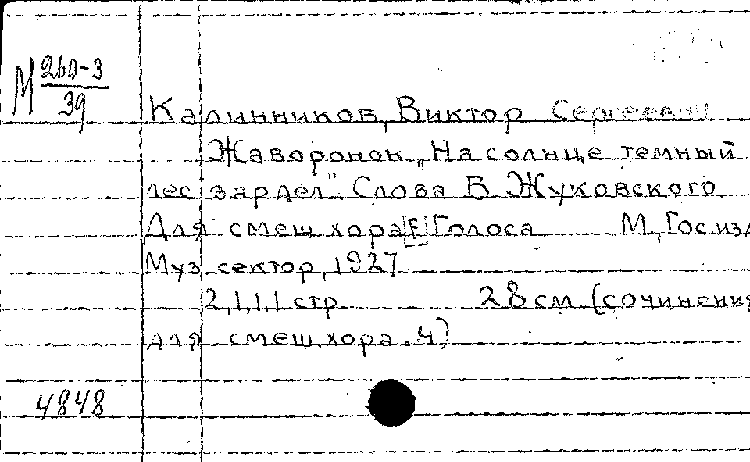 М 260-3
39
Калинников, Виктор Сергеевич
Жаворонок. „На солнце темный
лес зардел". Слова В. Жуковского
Для смеш. хора [F] Голоса М., Гос. изд.
Муз. сектор, 1927
2,1,1,1 стр. 28 см. (сочинения
для смеш. хора. 4)
4848